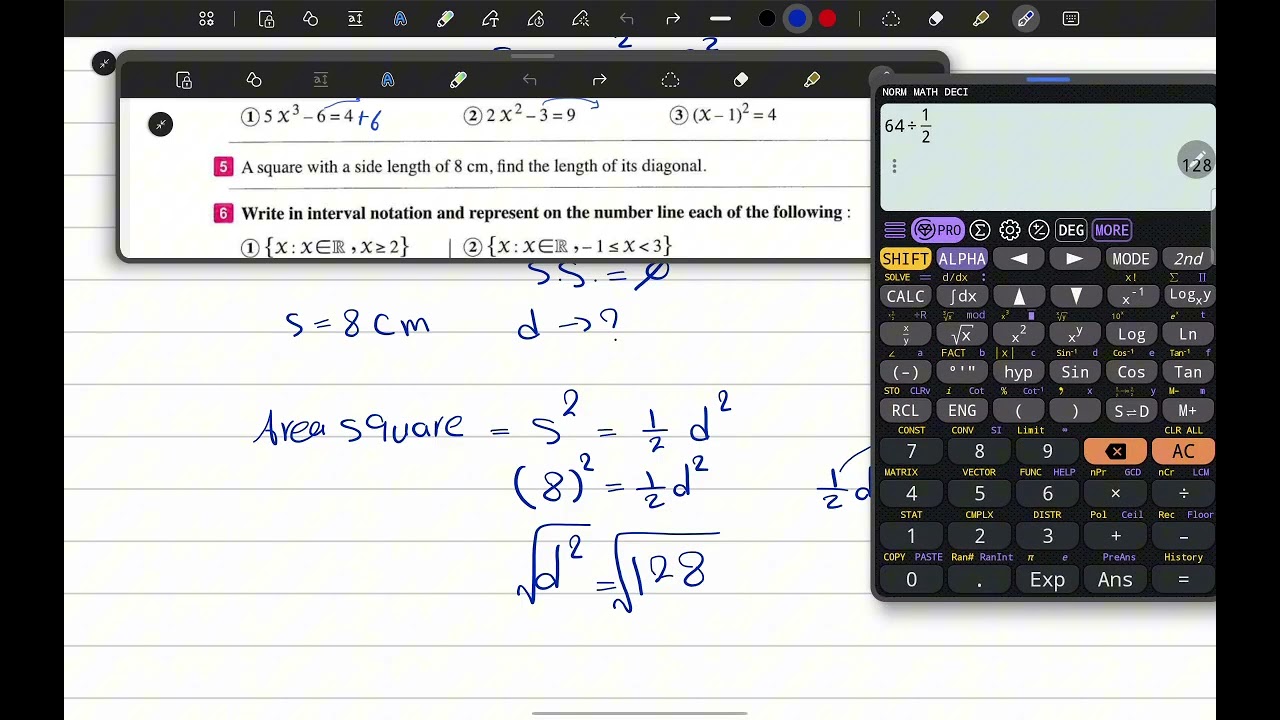 ① 5x³ – 6 = 4 +6 ② 2x² – 3 = 9 ③ (x – 1)² = 4
5 A square with a side length of 8 cm, find the length of its diagonal.
6 Write in interval notation and represent on the number line each of the following :
① {x : x ∈ ℝ , x ≥ 2} ② {x : x ∈ ℝ , – 1 ≤ x < 3}
S.S. = ∅
S = 8 cm d → ?
Area square = S² = 1/2 d²
(8)² = 1/2 d² 1/2 d
√d² = √128
NORM MATH DECI
64÷1/2
128
PRO Σ DEG MORE
SHIFT ALPHA ◀ ▶ MODE 2nd
SOLVE = d/dx : x! Σ Π
CALC ∫dx ▲ ▼ x⁻¹ Logₓy
x/y √x x² xʸ Log Ln
∠ a FACT b |x| c Sin⁻¹ d Cos⁻¹ e Tan⁻¹ f
(–) °'" hyp Sin Cos Tan
RCL ENG ( ) S⇌D M+
CONST CONV SI Limit ∞ CLR ALL
7 8 9 AC
MATRIX VECTOR FUNC HELP nPr GCD nCr LCM
4 5 6 × ÷
STAT CMPLX DISTR Pol Ceil Rec Floor
1 2 3 + –
COPY PASTE Ran# RanInt π e PreAns History
0 . Exp Ans =